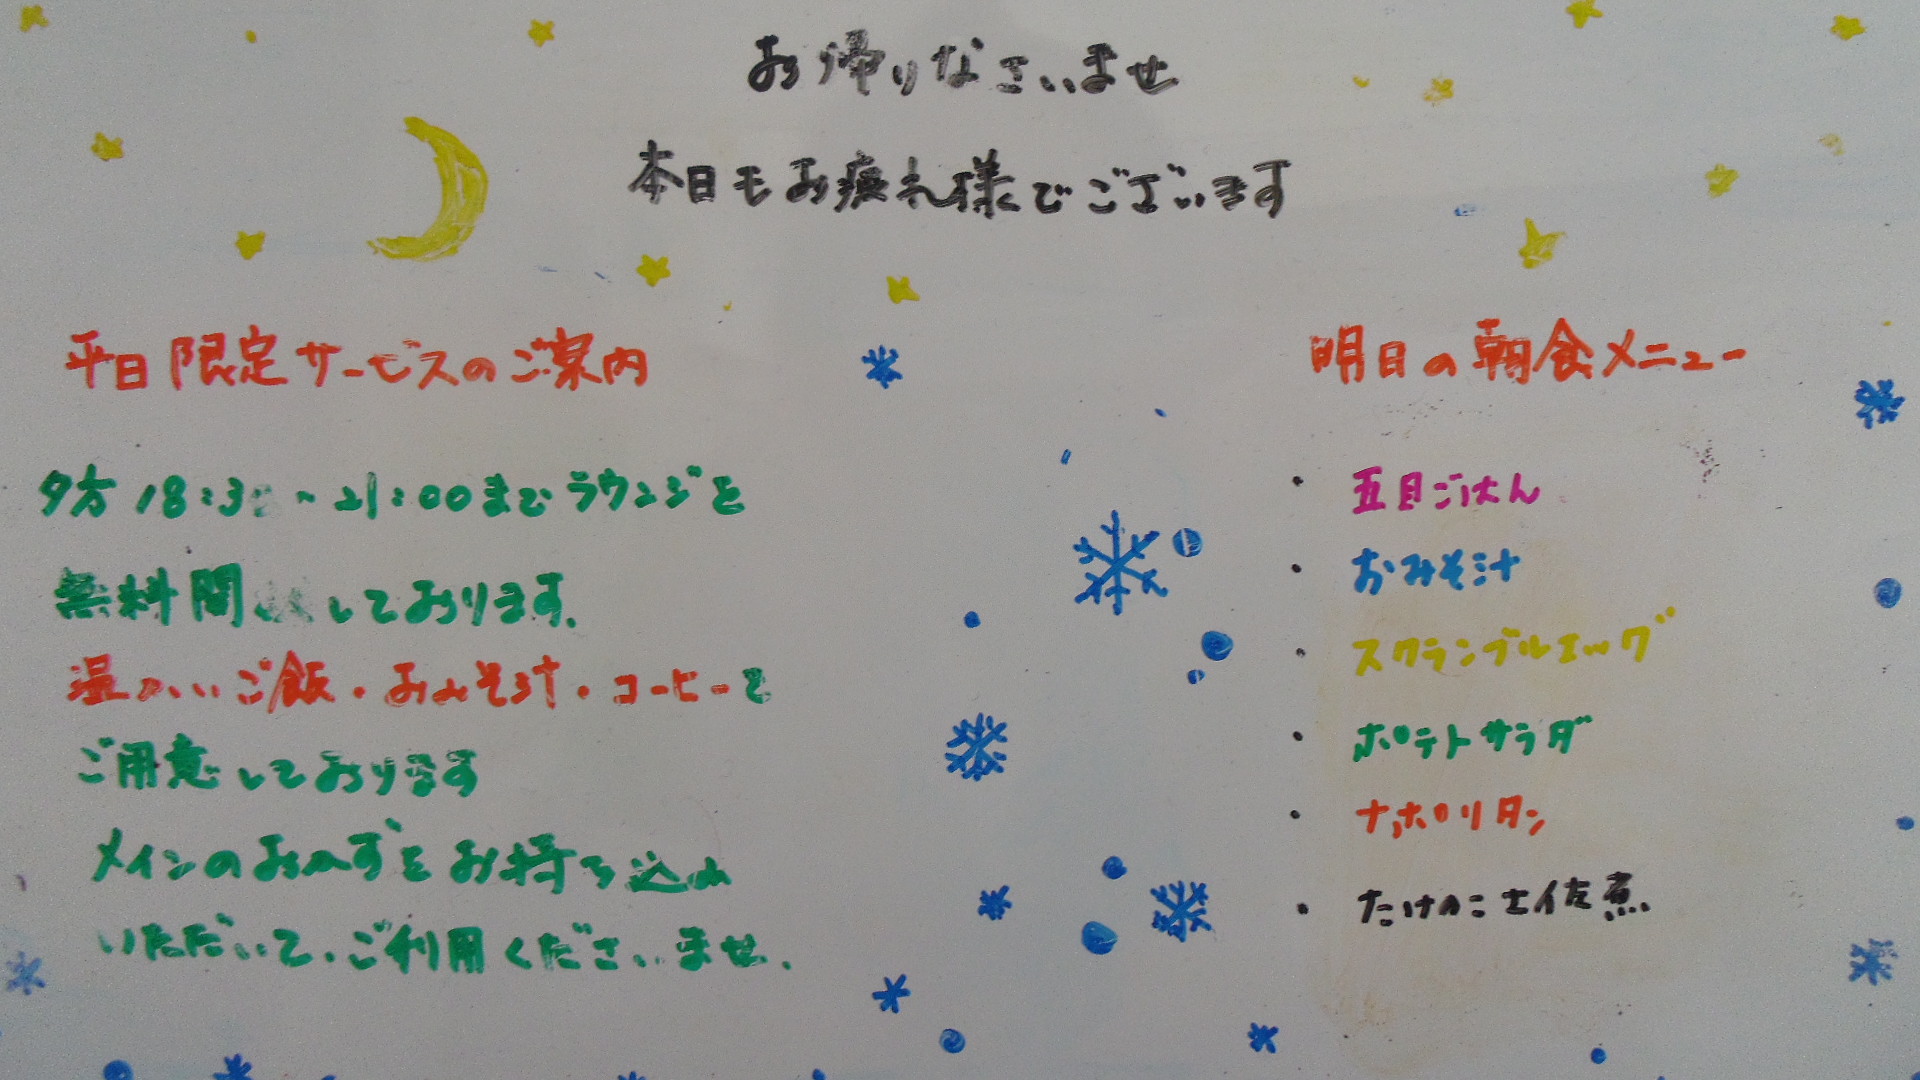 お帰りなさいませ
本日もお疲れ様でございます
平日限定サービスのご案内
夕方18:30~21:00までラウンジを
無料開放しております.
温かいご飯・おみそ汁・コーヒーを
ご用意しております
メインのおかずをお持ち込み
いただいて、ご利用くださいませ.
明日の朝食メニュー
・五目ごはん
・おみそ汁
・スクランブルエッグ
・ポテトサラダ
・ナポリタン
・たけのこ土佐煮